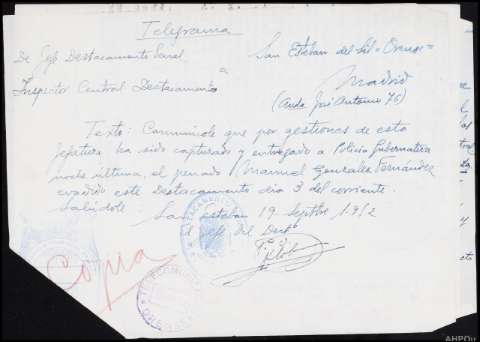 Telegrama
De Jefe Destacamento Penal San Esteban del Sil - Orense -
a
Inspector Central Destacamentos Madrid
(Avda José Antonio 76)
Texto: Comunicole que por gestiones de esta
jefatura ha sido capturado y entregado a Policia Gubernativa
noche última, el penado Manuel Gonzalez Fernández
evadido este Destacamento dia 3 del corriente.
Saludole
San Esteban 19 Septbre 1.952
El Jefe del Destº
Copia
AHPOu